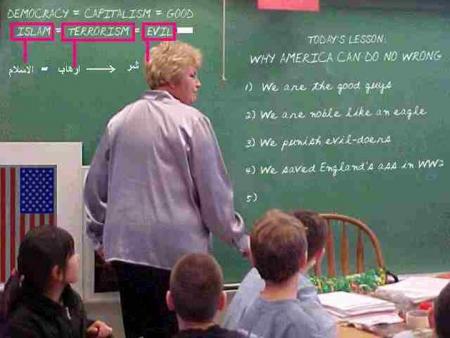 DEMOCRACY = CAPITALISM = GOOD
ISLAM = TERRORISM = EVIL
الاسلام = ارهاب شر
TODAY'S LESSON:
WHY AMERICA CAN DO NO WRONG
1) We are the good guys
2) We are noble like an eagle
3) We punish evil-doers
4) We saved England's ass in WW2
5)